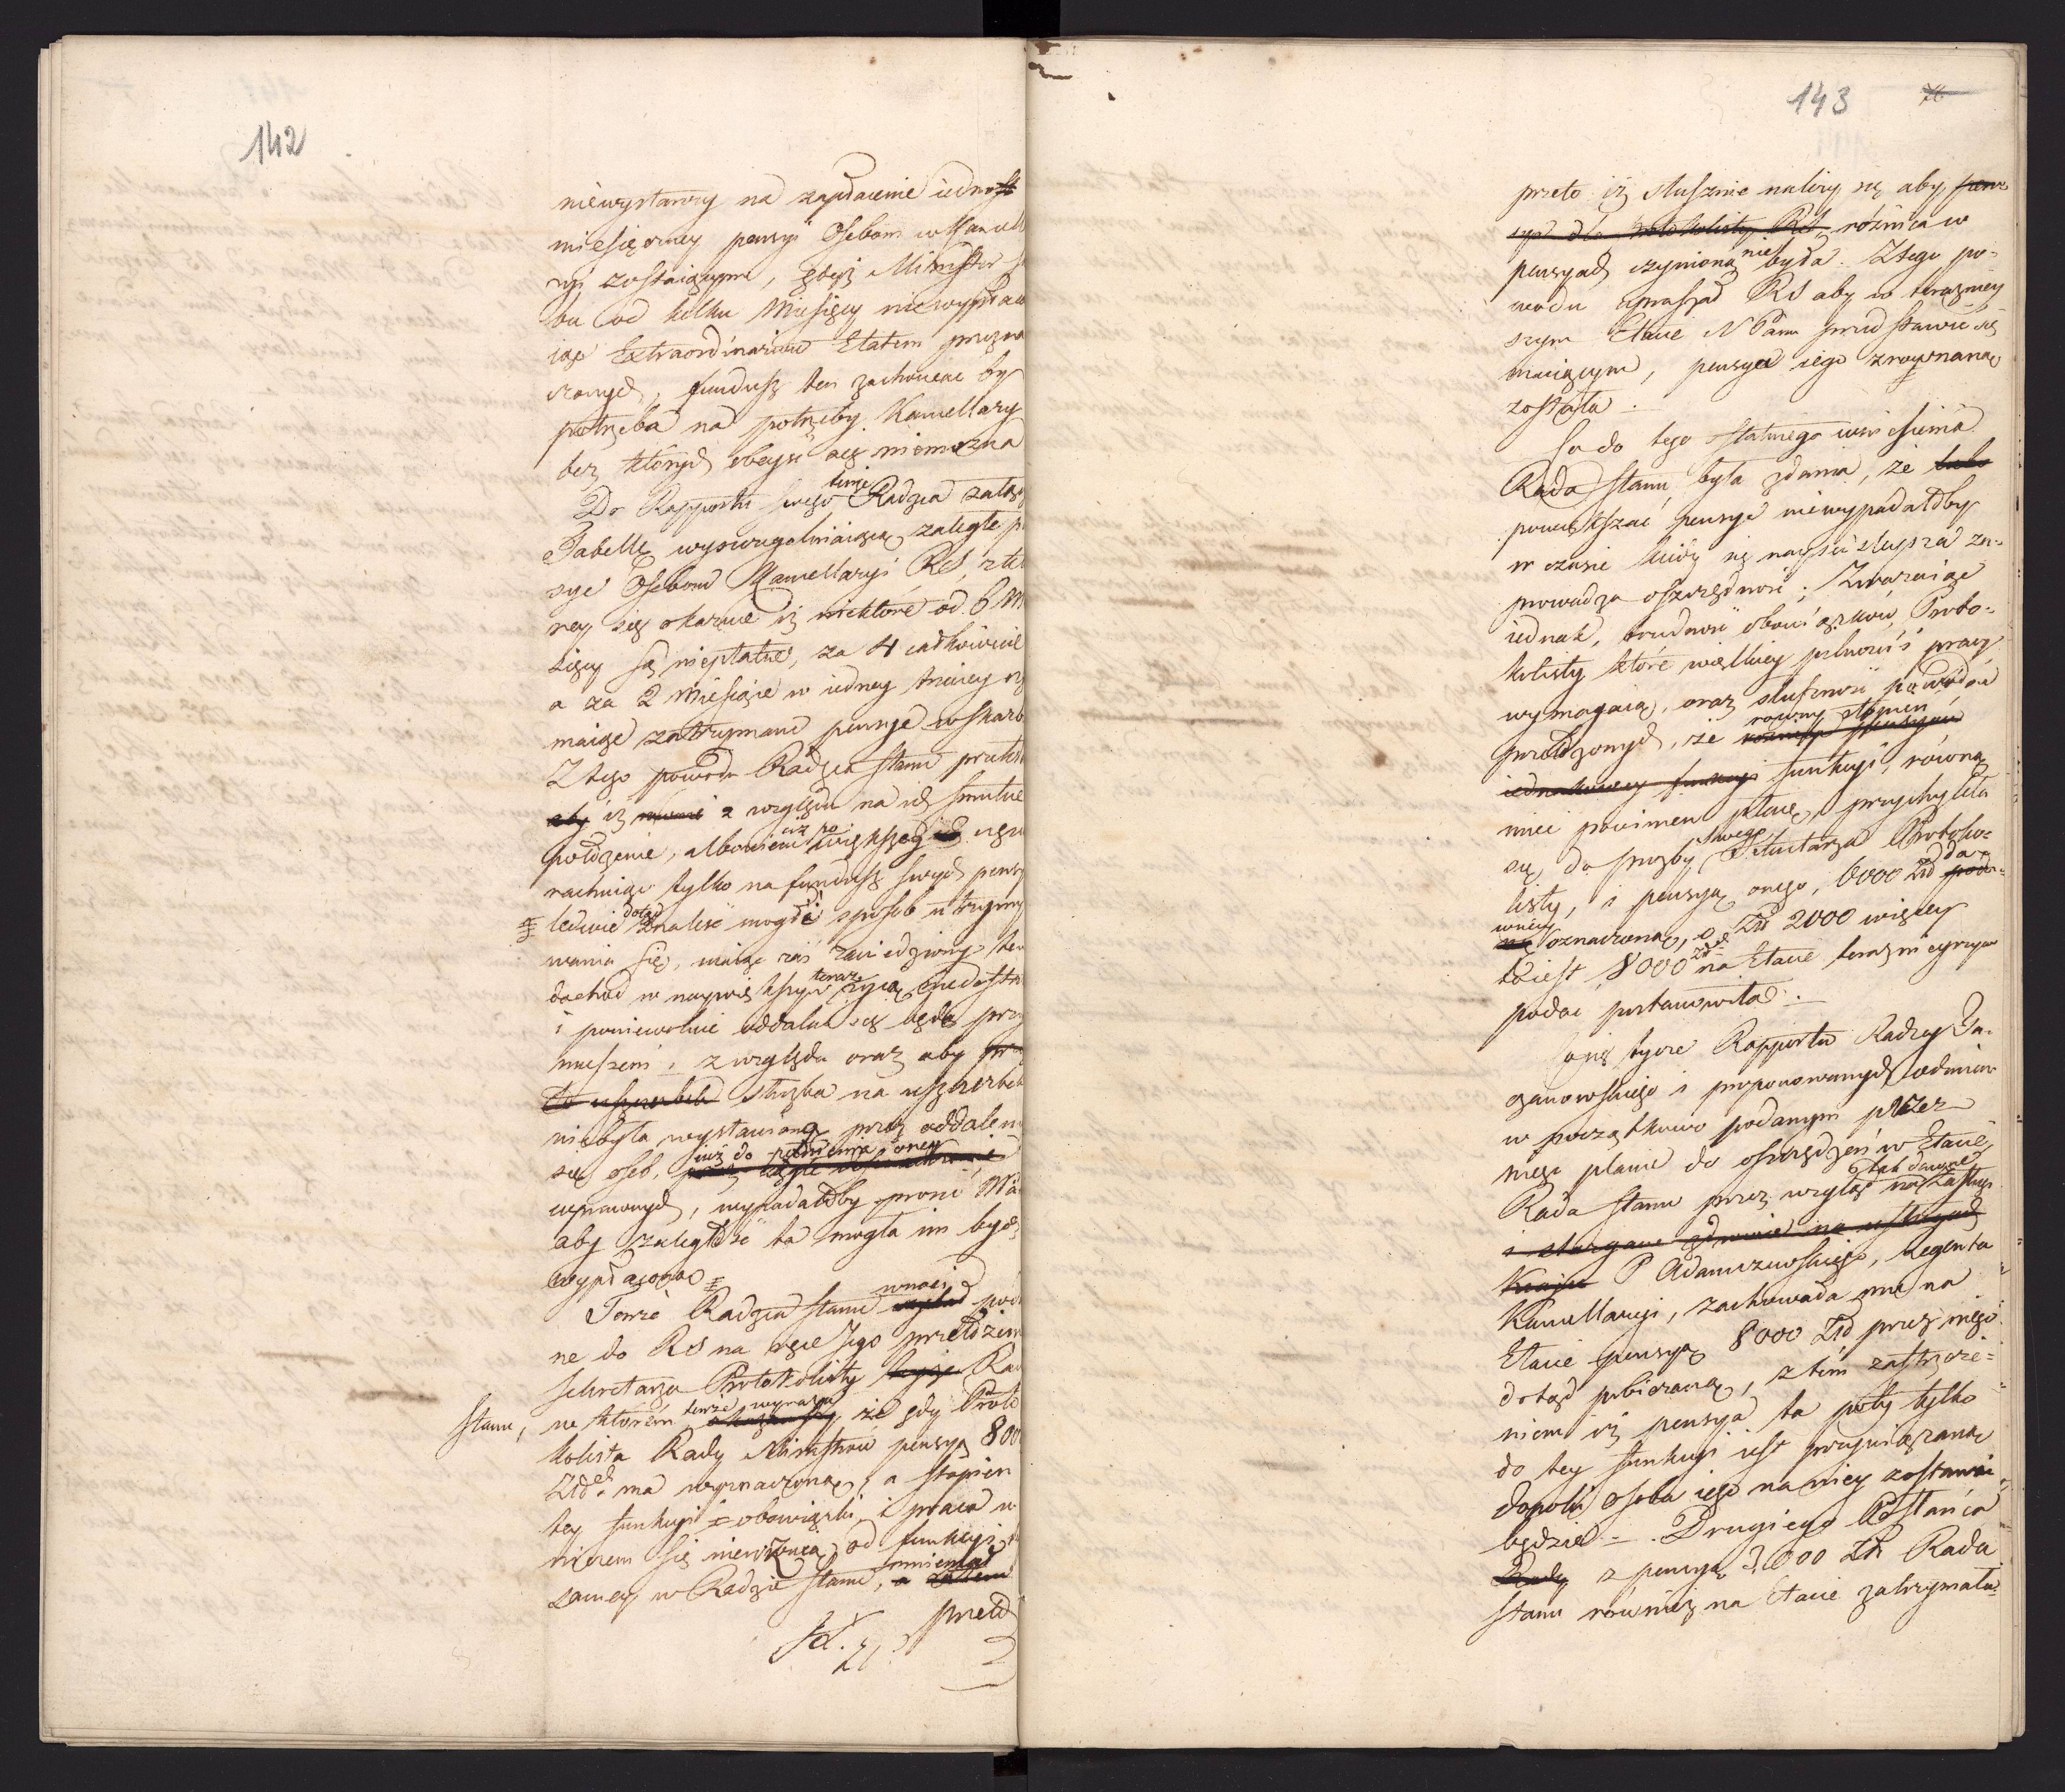 142
niewystarczy na zapłacenie iedno
miesięczney pensyi Osobom w Kancell
ryi zostaiącym, gdyż Minister
bu od kilku Miesięcy niewypłaca
iąc Extraordinarium Etatem przezna
czonych, fundusz ten zachować by
potrzeba na potrzeby Kancellary
bez których obeyść się niemożna
Do Rapportu swego tenże Radzca załąc
Tabellę wyszczegulniaiącą zaległe p
sye Osobom Kancellaryi RS, z te
rey się okazuie iż niektóre od 6. M
sięcy są niepłatne, za 4 całkowicie
a za 2 Miesiące w iedney trzeciey cz
maiąc zatrzymane pensye w skarb
Z tego powodu Radzca Stanu przekł
aby iż z względu na ich smutne
położenie, albowiem iuż po większey
rachuiąc tylko na fundusz swych pensy
ledwie dotąd znaleść mogli sposób utrzymy
wania się, maiąc zaś zawiedziony ten
dochod w naywiększym teraz żyią niedosta
i poniewolnie oddalać się będą przy
muszeni, z względu oraz aby
to uszczerbek służba na uszczerbek
niebyła wystawioną przez oddaleni
się osób, iuż do pełnienia oney
wprawnych, wypadałoby prosić Mi
aby zaległość ta mogła im bydź
wypłacona
Tenże Radzca Stanu wnosi pod
ne do RS na ręce Jego przełożen
Sekretarza Protokolisty Rad
Stanu, w którem tenże wyraża, że gdy Proto
kolista Rady Ministrów pensyą 800
Złch ma wyznaczoną, a stopień
tey funkcyi i obowiązki, i praca w
niczem się nieróżnią od funkcyi
samey w Radzie Stanu, a mniemał
przeto
143
przeto iż słusznie należy się aby
różnica w
pensyach czyniona nie była. Z tego po-
wodu upraszał RS aby w terazniey
szym Etacie N Panu przedstawić się
maiącym, pensya iego zrownaną
została.
Co do tego ostatniego wniesienia
Rada Stanu była zdania, że
powiększać pensye niewypadałoby
w czasie kiedy się nayściśleysza za-
prowadza oszczędność; Zważaiąc
iednak, trudność obowiązków Proto-
kolisty które wielkiey pilności i pracy
wymagaią, oraz słuszność powodów
przełożonych, że rowny stopień
iednakowey funkcyi funkcyi, równą
mieć powinien płacę, przychyliła
się do prozby swego Sekretarza Protoko-
listy, i pensyą onego, 6000 Zł da-
wniey oznaczoną, o Zł 2000 więcey
to iest 8000 Zł na Etacie terazniejszym
podać postanowiła.
Co się tycze Rapportu Radzcy Ja-
czanowskiego i proponowanych odmian
w początkowo podanym przez
niego planie do oszczędzeń w Etacie,
Rada Stanu przez wzgląd na tak dawne zasługi
i stargane zdrowie na usługach
Kraju P Adamczewskiego, Regenta
Kancellaryi, zachowała mu na
Etacie pensyą 8000 Zł przez niego
dotąd pobieraną, z tem zastrzeże-
niem iż pensya ta poty tylko
do tey funkcyi iest przywiązaną
dopoki osoba iego na niey zostawać
będzie. Drugiego Posłańca
Rady z pensyą 3,000 Zł Rada
Stanu również na Etacie zatrzymała